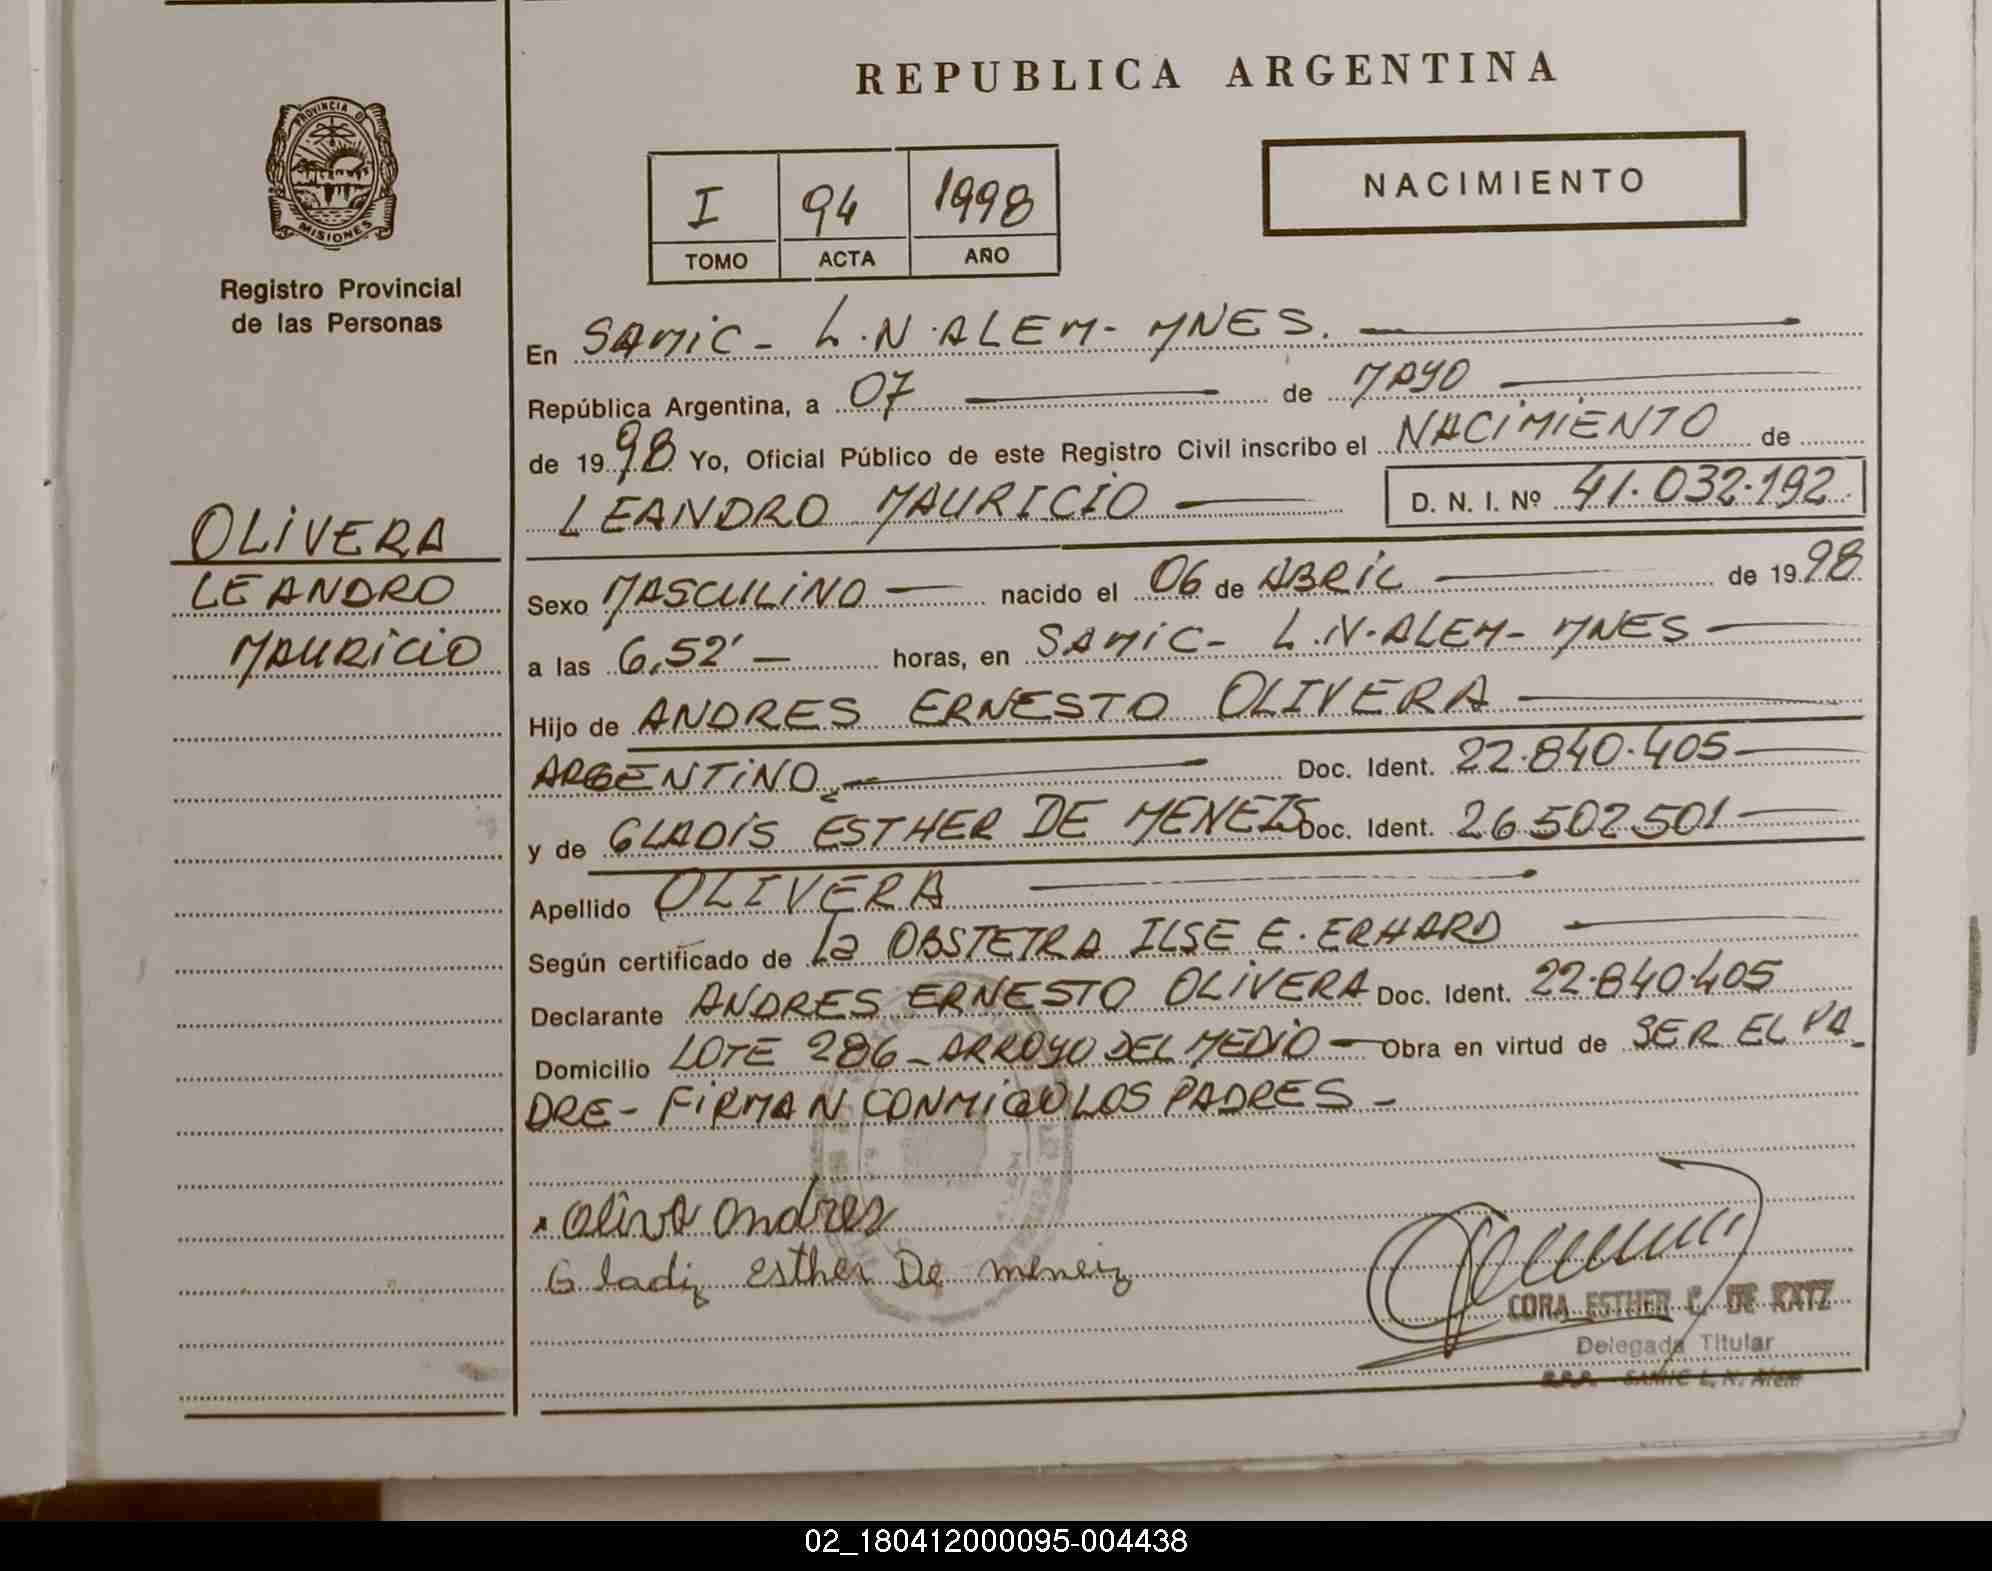 REPUBLICA ARGENTINA
PROVINCIA D
MISIONES
Registro Provincial
de las Personas
I 94 1998
TOMO ACTA AÑO
NACIMIENTO
OLIVERA
LEANDRO
MAURICIO
En SAMIC - L.N.ALEM - MNES.
República Argentina, a 07 de MAYO
de 1998 Yo, Oficial Público de este Registro Civil inscribo el NACIMIENTO de
LEANDRO MAURICIO D. N. I. Nº 41.032.192
Sexo MASCULINO nacido el 06 de ABRIL de 1998
a las 6,52' horas, en SAMIC - L.N.ALEM - MNES
Hijo de ANDRES ERNESTO OLIVERA
ARGENTINO Doc. Ident. 22.840.405
y de GLADIS ESTHER DE MENEIS Doc. Ident. 26.502.501
Apellido OLIVERA
Según certificado de La OBSTETRA ILSE E. ERHARD
Declarante ANDRES ERNESTO OLIVERA Doc. Ident. 22.840.405
Domicilio LOTE 286 - ARROYO DEL MEDIO - Obra en virtud de SER EL PA_
DRE - FIRMAN CONMIGO LOS PADRES -
OlivA Andres
Gladiz esther De meneiz
CORA ESTHER C. DE KATZ
Delegada Titular
R.P.P. SAMIC L. N. Alem
02_180412000095-004438